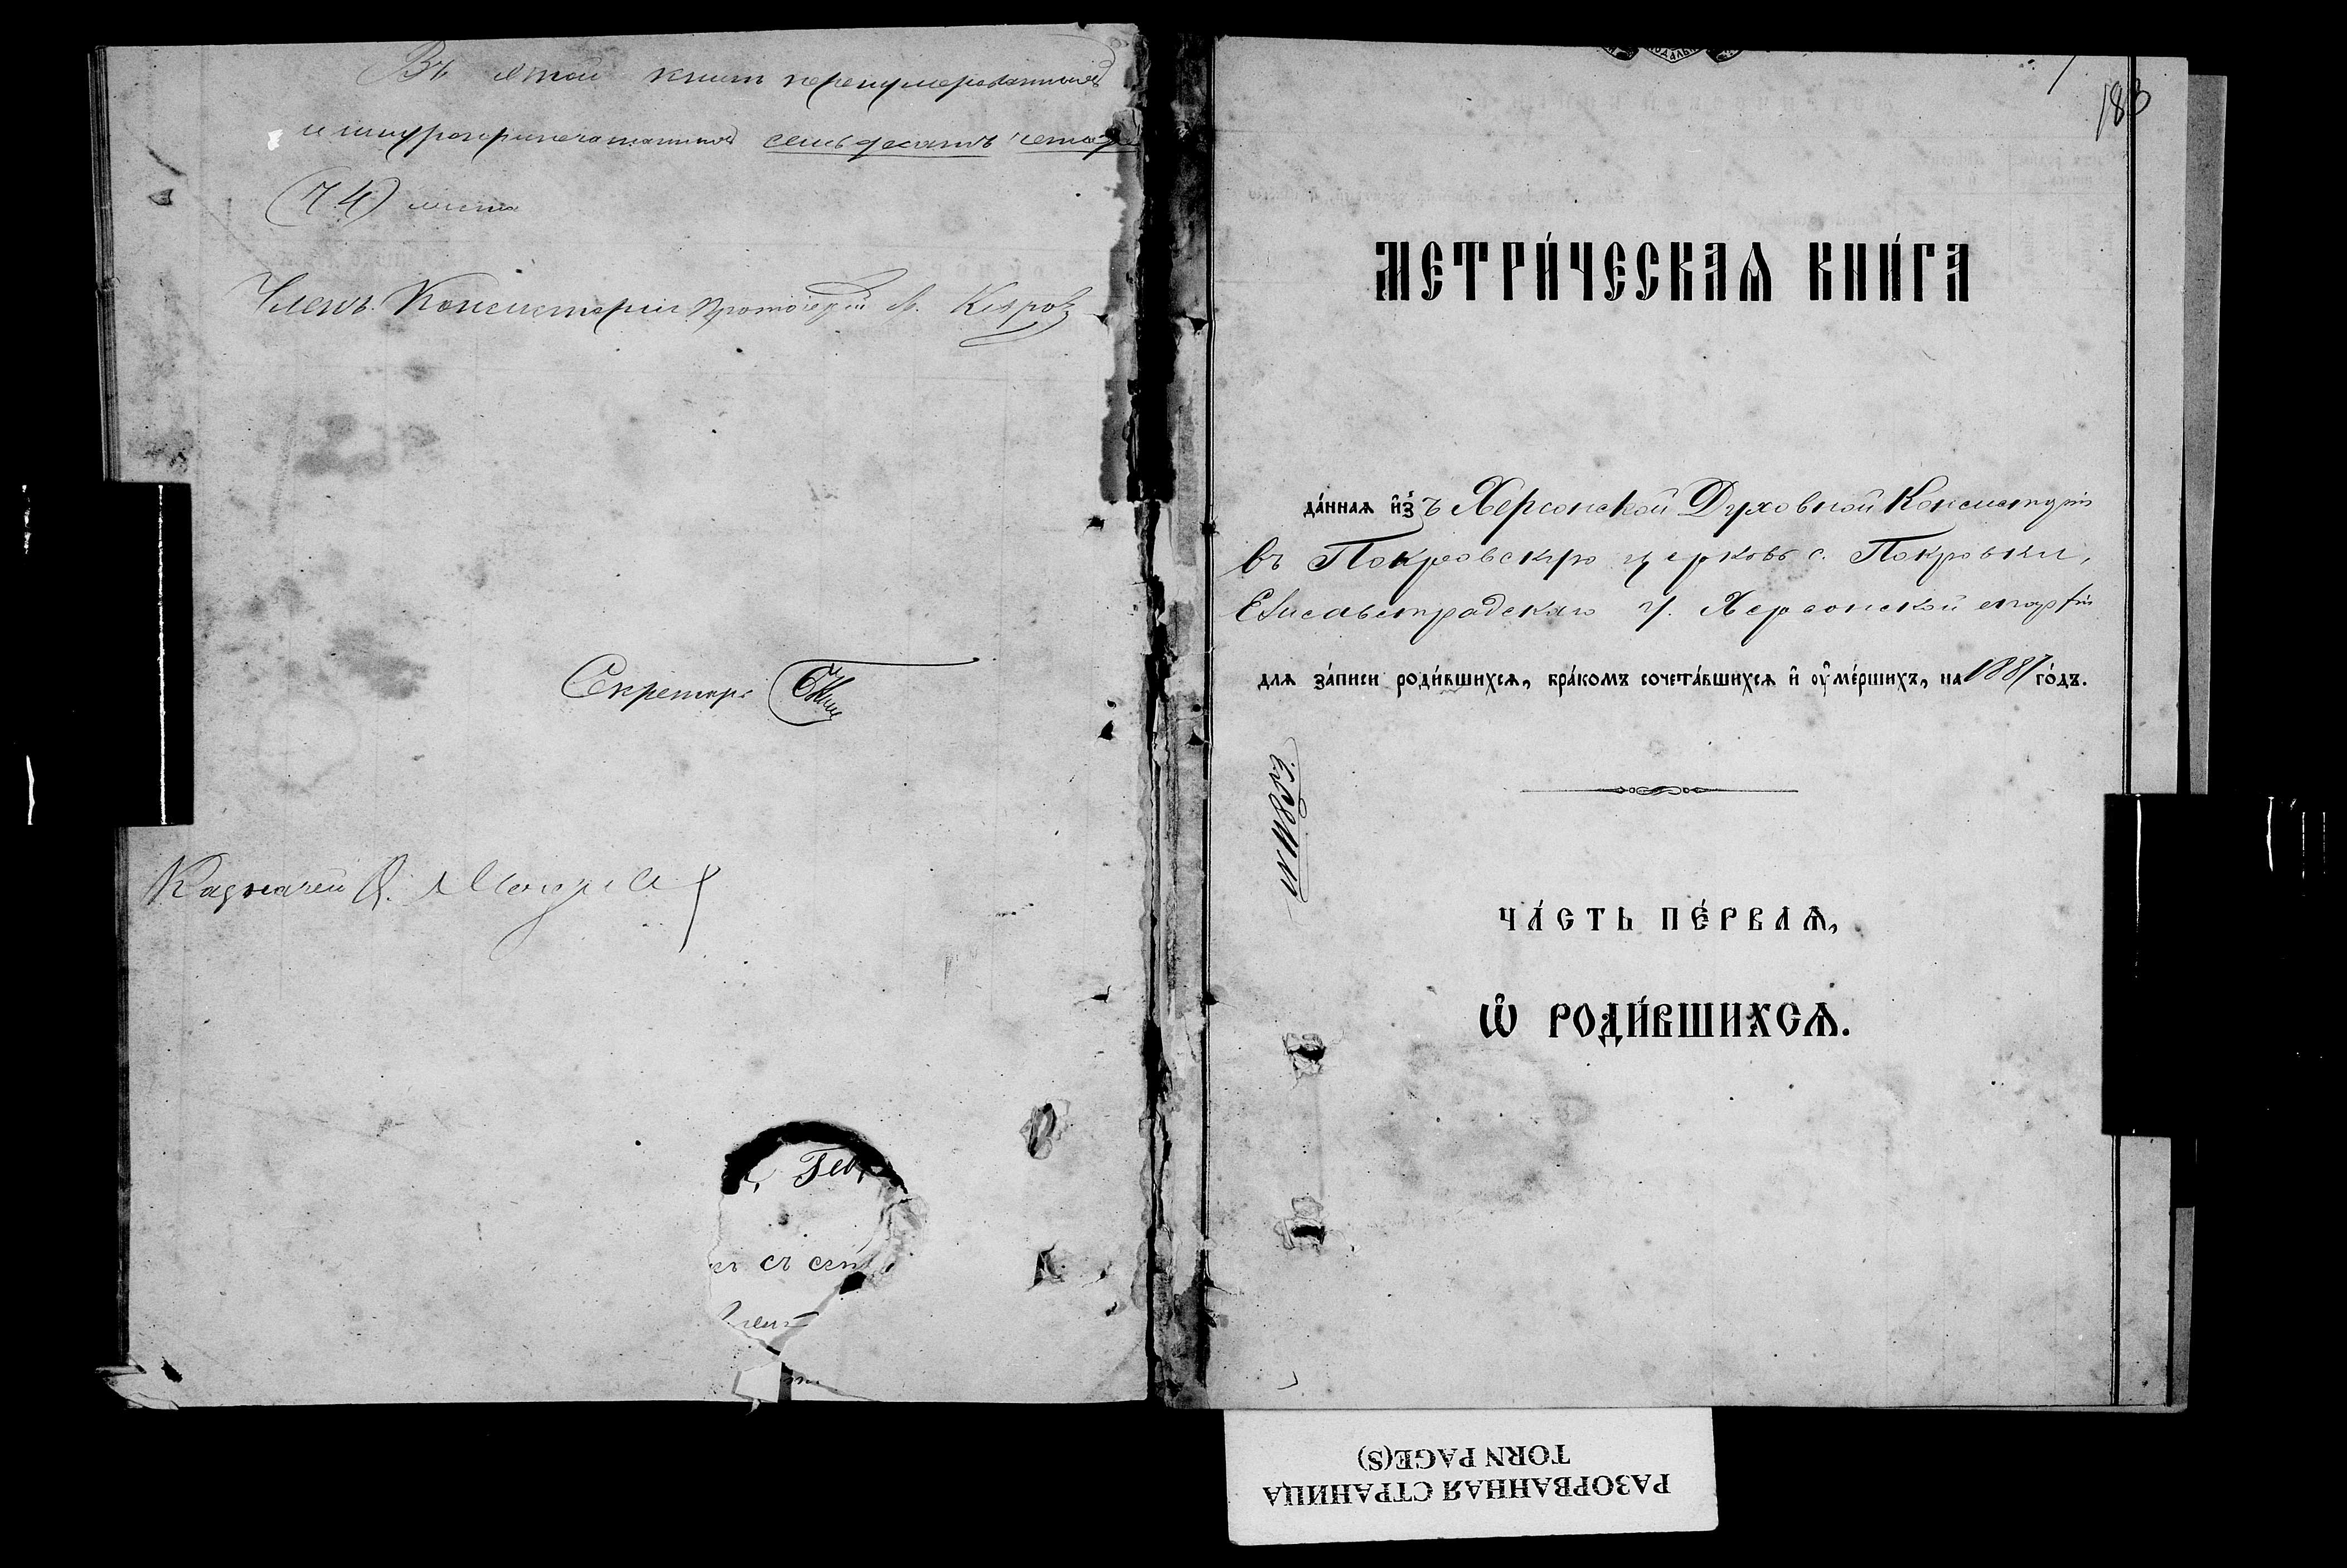 Въ этой книгѣ перенумерованныхъ
и шнуроприпечатанныхъ семьдесятъ четыре
(74) листа
Членъ Консисторіи Протоіерей
Секретарь
Казначей
съ сем
183
МЕТРИ́ЧЕСКАѦ КНИ́ГА
да́ннаѧ и҆зъ Херсонской Духовной Консисторіи
въ Покровскую церковь с. Покровки,
Елисаветградскаго у. Херсонской епархіи
для за́писи роди́вшихсѧ, бра́комъ сочета́вшихсѧ и҆ оу҆ме́ршихъ, на 1887 го́дъ.
ЧА́СТЬ ПЕ́РВАѦ,
Ѽ РОДИ́ВШИХСѦ.
РАЗОРВАННАЯ СТРАНИЦА
TORN PAGE(S)